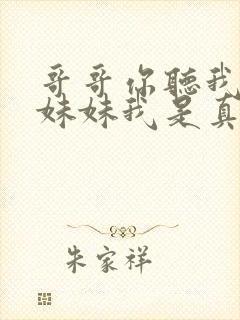 哥哥你聽我
妹妹我是真
朱家祥